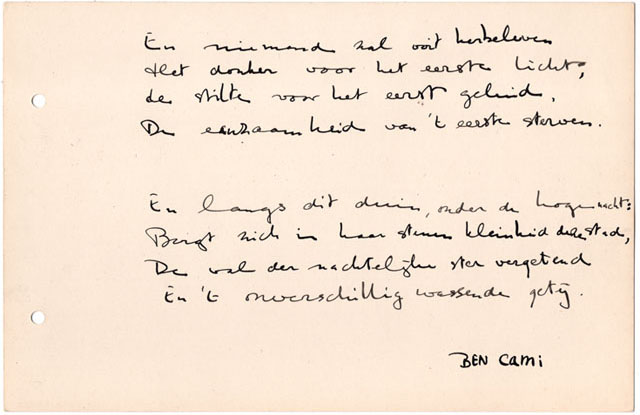 En niemand zal ooit herbeleven
Het donker voor het eerste licht;
de stilte voor het eerst geluid,
De eenzaamheid van 't eerste sterven.
En langs dit duin, onder de hoge nacht:
Bergt zich in haar stenen kleinheid deze stad,
De val der nachtelijke ster vergetend
En 't onverschillig wassende getij.
BEN Cami